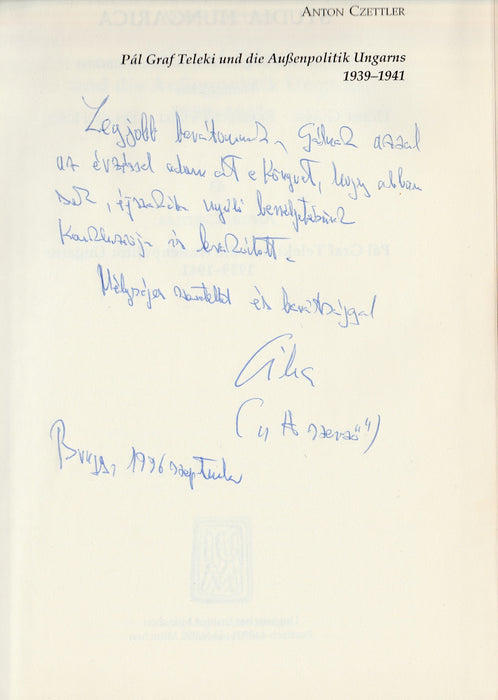 ANTON CZETTLER
Pál Graf Teleki und die Außenpolitik Ungarns
1939–1941
Legjobb barátomnak, Gálnak azzal
az érzéssel adom át e könyvet, hogy abban
sok, éjszakák nyúló beszélgetésünk
konklúziója is
Mélységes szeretettel és barátsággal
("A szerző")
1996 szeptember